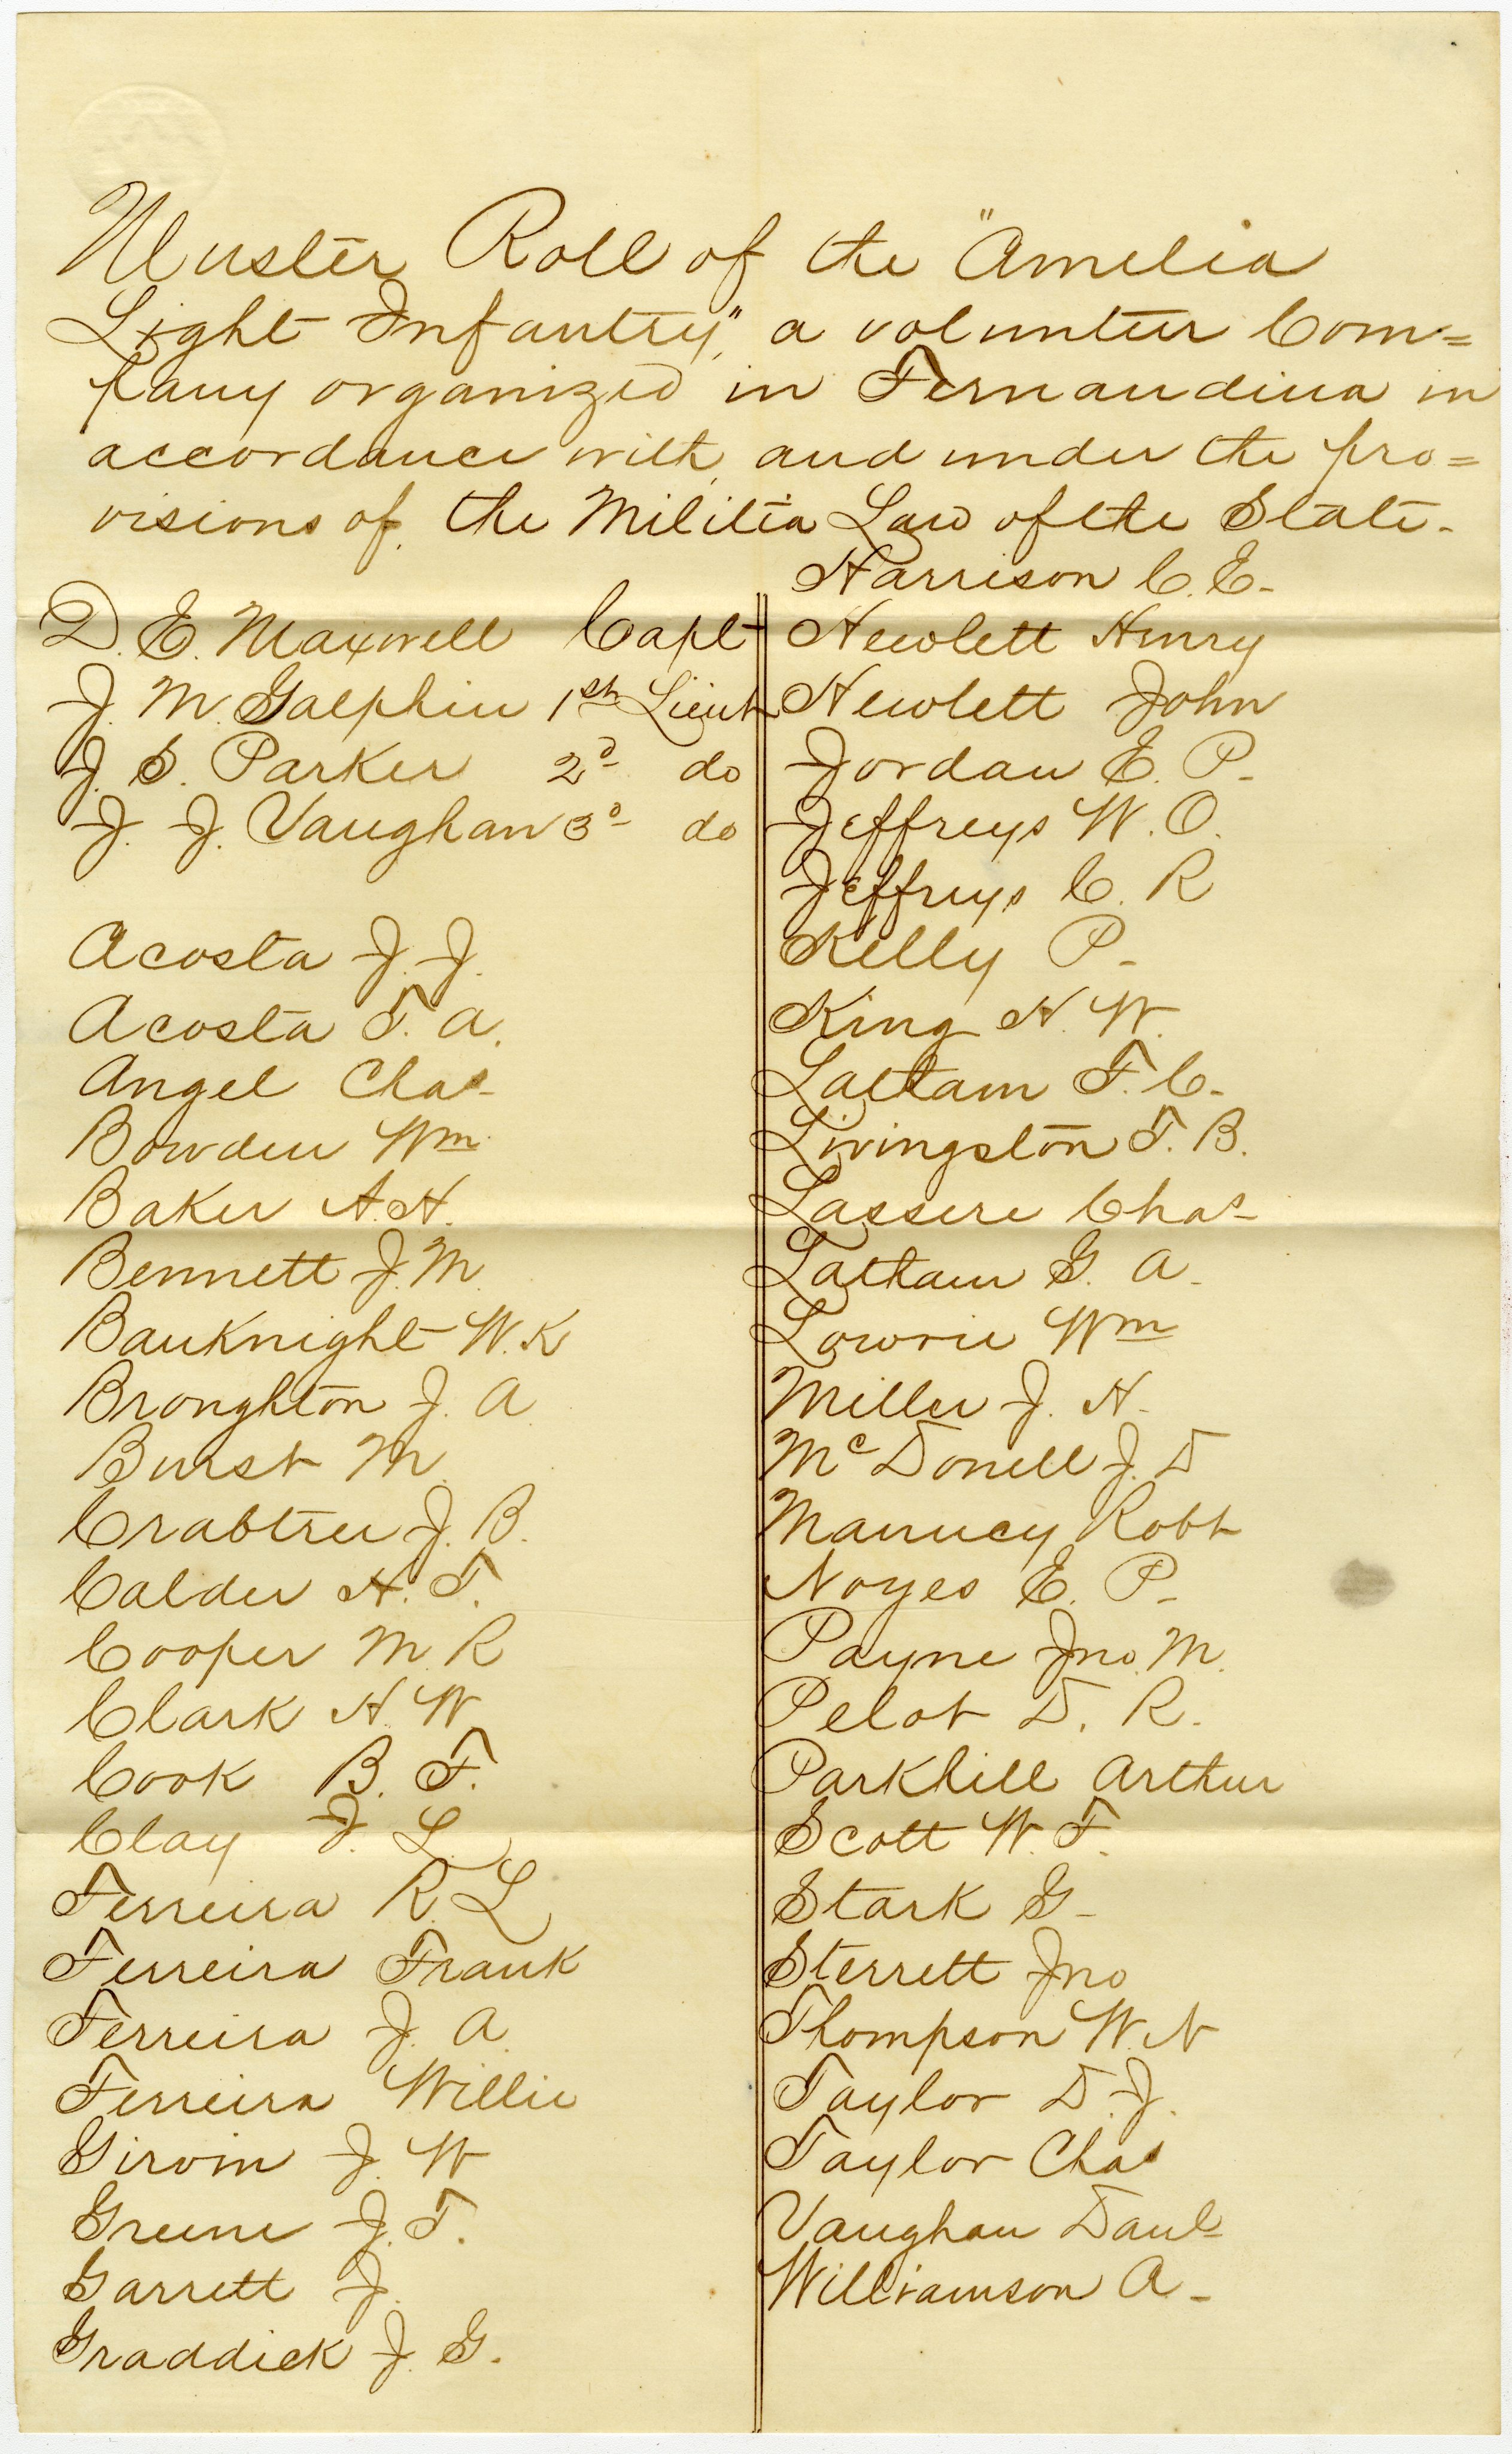 Muster Roll of the "Amelia
Light Infantry," a volunteer Com=
pany organized in Fernandina in
accordance with, and under the pro=
visions of, the Militia Law of the State-
D. E. Maxwell Capt
J. M. Galphin 1st Lieut
J. S. Parker 2d do
J. J. Vaughan 3d do
Acosta J. J.
Acosta T. A.
Angel Chas-
Bowden Wm.
Baker A. H.
Bennett J. M.
Bauknight W. K
Broughton J. A
Burst M.
Crabtree J. B.
Calder H. T.
Cooper M. R
Clark H. W
Cook B. F.
Clay J. L.
Ferreira R. L
Ferreira Frank
Ferreira J. A.
Ferreira Willie
Girvin J. W
Greene J. T.
Garrett J.
Graddick J. G.
Harrison C. E-
Hewlett Henry
Hewlett John
Jordan E. P-
Jeffreys W. O.
Jeffreys C. R
Kelly P-
King H. W.
Latham F. C-
Livingston T. B.
Lassere Chas-
Latham G. A-
Lowrie Wm
Miller J. H-
McDonell J. D
Manucy Robt
Noyes E. P-
Payne Jno. M.
Pelot D. R-
Parkhill Arthur
Scott W. F.
Stark G-
Sterrett Jno
Thompson W. N
Taylor D. J.
Taylor Chas
Vaughan Danl-
Williamson A-